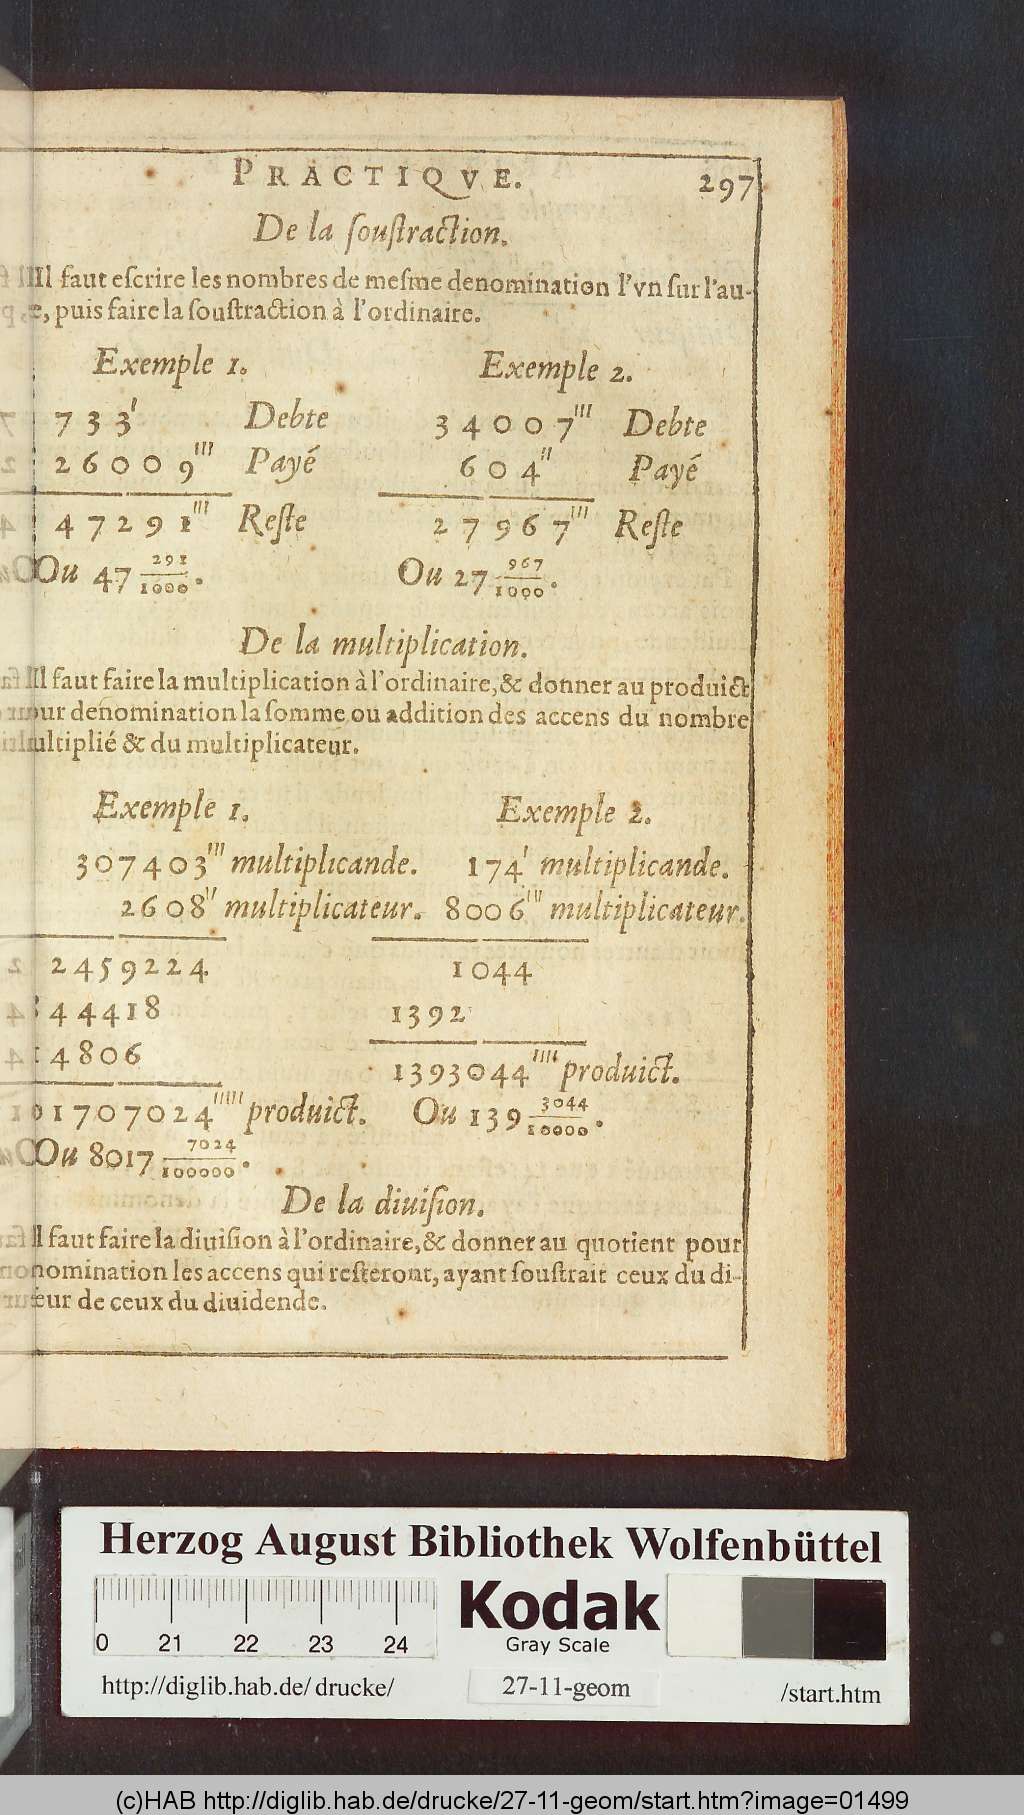 PRACTIQVE. 297
De la ſouſtraction.
Il faut eſcrire les nombres de meſme denomination l'vn ſur l'au-
e, puis faire la ſouſtraction à l'ordinaire.
Exemple 1. Exemple 2.
733′ Debte 34007‴ Debte
26009‴ Payé 604″ Payé
47291‴ Reſte 27967‴ Reſte
Ou 47 291/1000. Ou 27 967/1000.
De la multiplication.
Il faut faire la multiplication à l'ordinaire, & donner au produict
our denomination la ſomme ou addition des accens du nombre
ultiplié & du multiplicateur.
Exemple 1. Exemple 2.
307403‴ multiplicande. 174′ multiplicande.
2608″ multiplicateur. 8006‴ multiplicateur.
2459224 1044
44418 1392
4806 1393044″″ produict.
01707024‴″ produict. Ou 139 3044/10000.
Ou 8017 7024/100000.
De la diuiſion.
Il faut faire la diuiſion à l'ordinaire, & donner au quotient pour
nomination les accens qui reſteront, ayant ſouſtrait ceux du di-
eur de ceux du diuidende.
Herzog August Bibliothek Wolfenbüttel
0 21 22 23 24
Kodak
Gray Scale
http://diglib.hab.de/ drucke/ 27-11-geom /start.htm
(c)HAB http://diglib.hab.de/drucke/27-11-geom/start.htm?image=01499